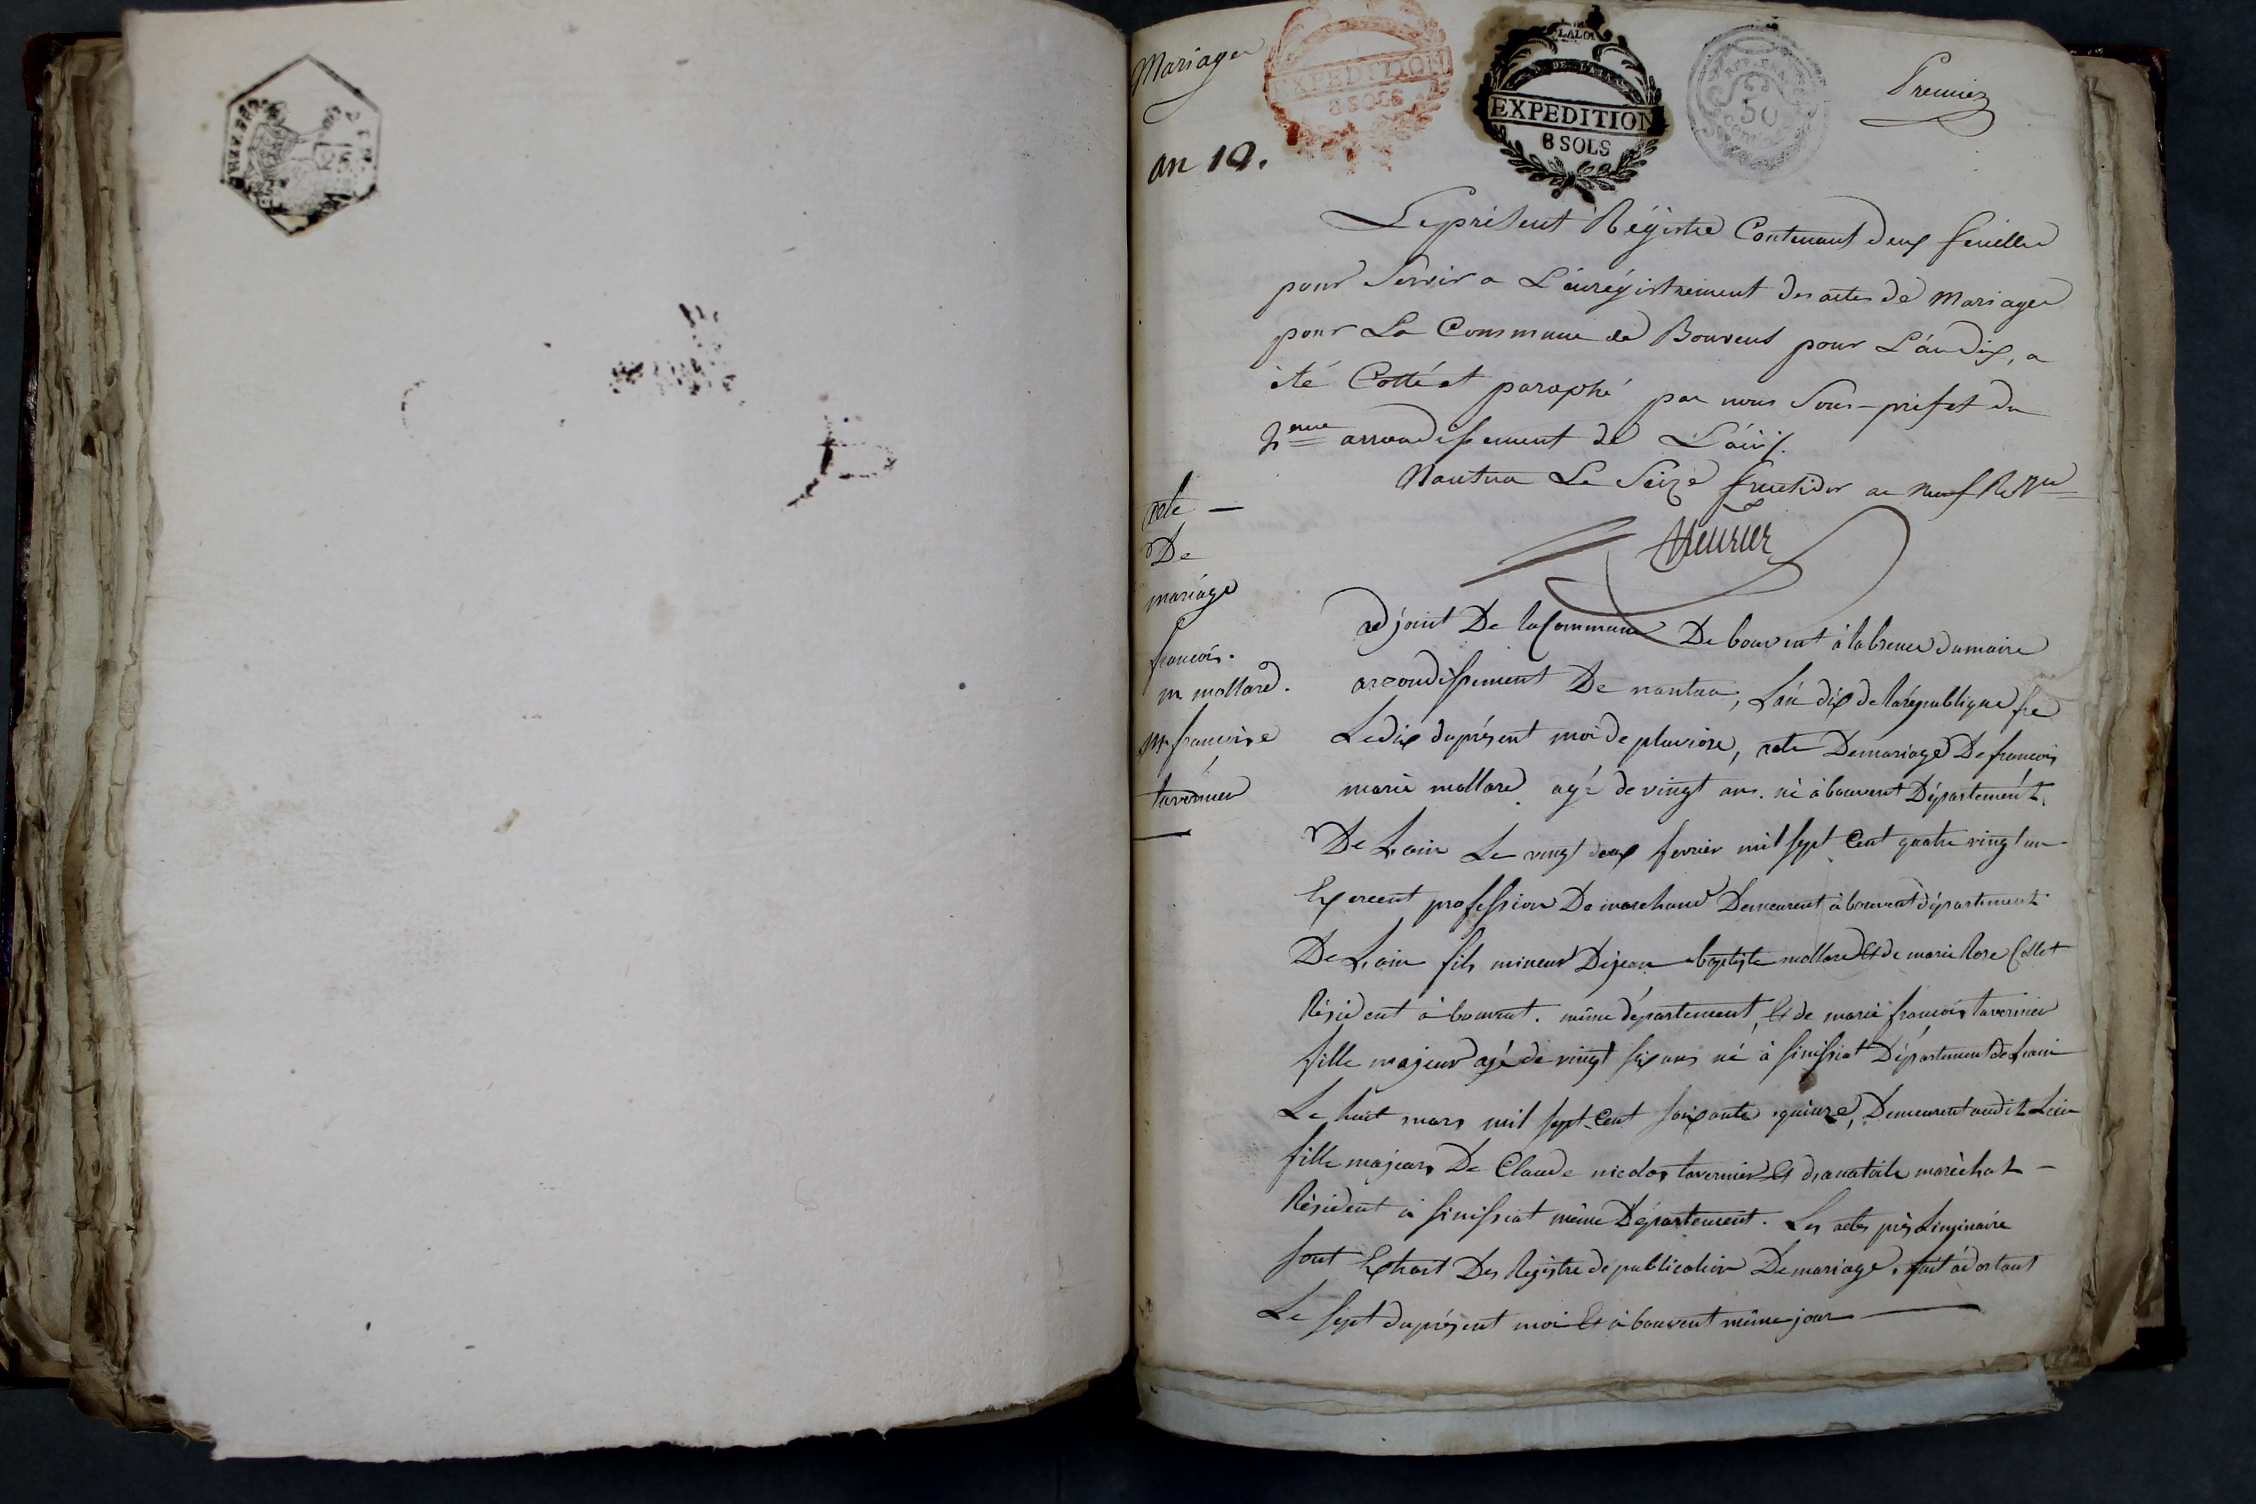 Mariage
EXPEDITION
8 SOLS
LA LOI
DE L'AIN
EXPEDITION
8 SOLS
50
Premier
an 10.
Le présent Régistre Contenant deux feuilles
pour Servir a L'énrégistrement des actes de Mariage
pour La Commune de Bouvent pour L'an Dix, a
été Cotté et paraphé par nous Sous-préfet du
arrondissement de L'ain.
Nantua Le Seize fructidor an neuf
acte
De
mariage
francois.
m mollard.
M francoise
tavernier
adjoint De la Commune De bouvent à labsence du maire
arrondissement De nantua, L'an dix de la république fre
Le dix du présent moi de pluviose, acte De mariage De francois
marie mollard agé de vingt ans. né à bouvent Département
De L'ain Le vingt deux fevrier mil sept Cent quatre vingt un
Exercent profession De marchand Demeurent à bouvent département
De L'ain fils mineur De jean baptiste mollard Et de marie Rose Collet
Résident à bouvent. même département, Et de marie francois tavernier
fille majeur agé de vingt six ans né à sinissiat Département de L'ain
Le huit mars mil sept Cent soixante quinze, Demeurent audit Lieu
fille majeur De Claude nicolas tavernier Et d'anatoile maréchat
Résident à sinissiat même Département. Les actes préliminaire
sont Extrait Des Registre de publication De mariage, fait à dortant
Le sept du présent moi Et à bouvent même jour